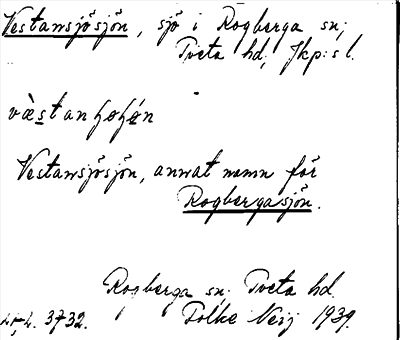 Vestansjösjön, sjö i Rogberga sn,
Tveta hd, Jkp:s l.
væ̀stanhøhø̀n
Vestansjösjön, annat namn för
Rogbergasjön.
Rogberga sn, Tveta hd.
3732. Folke Neij 1939.